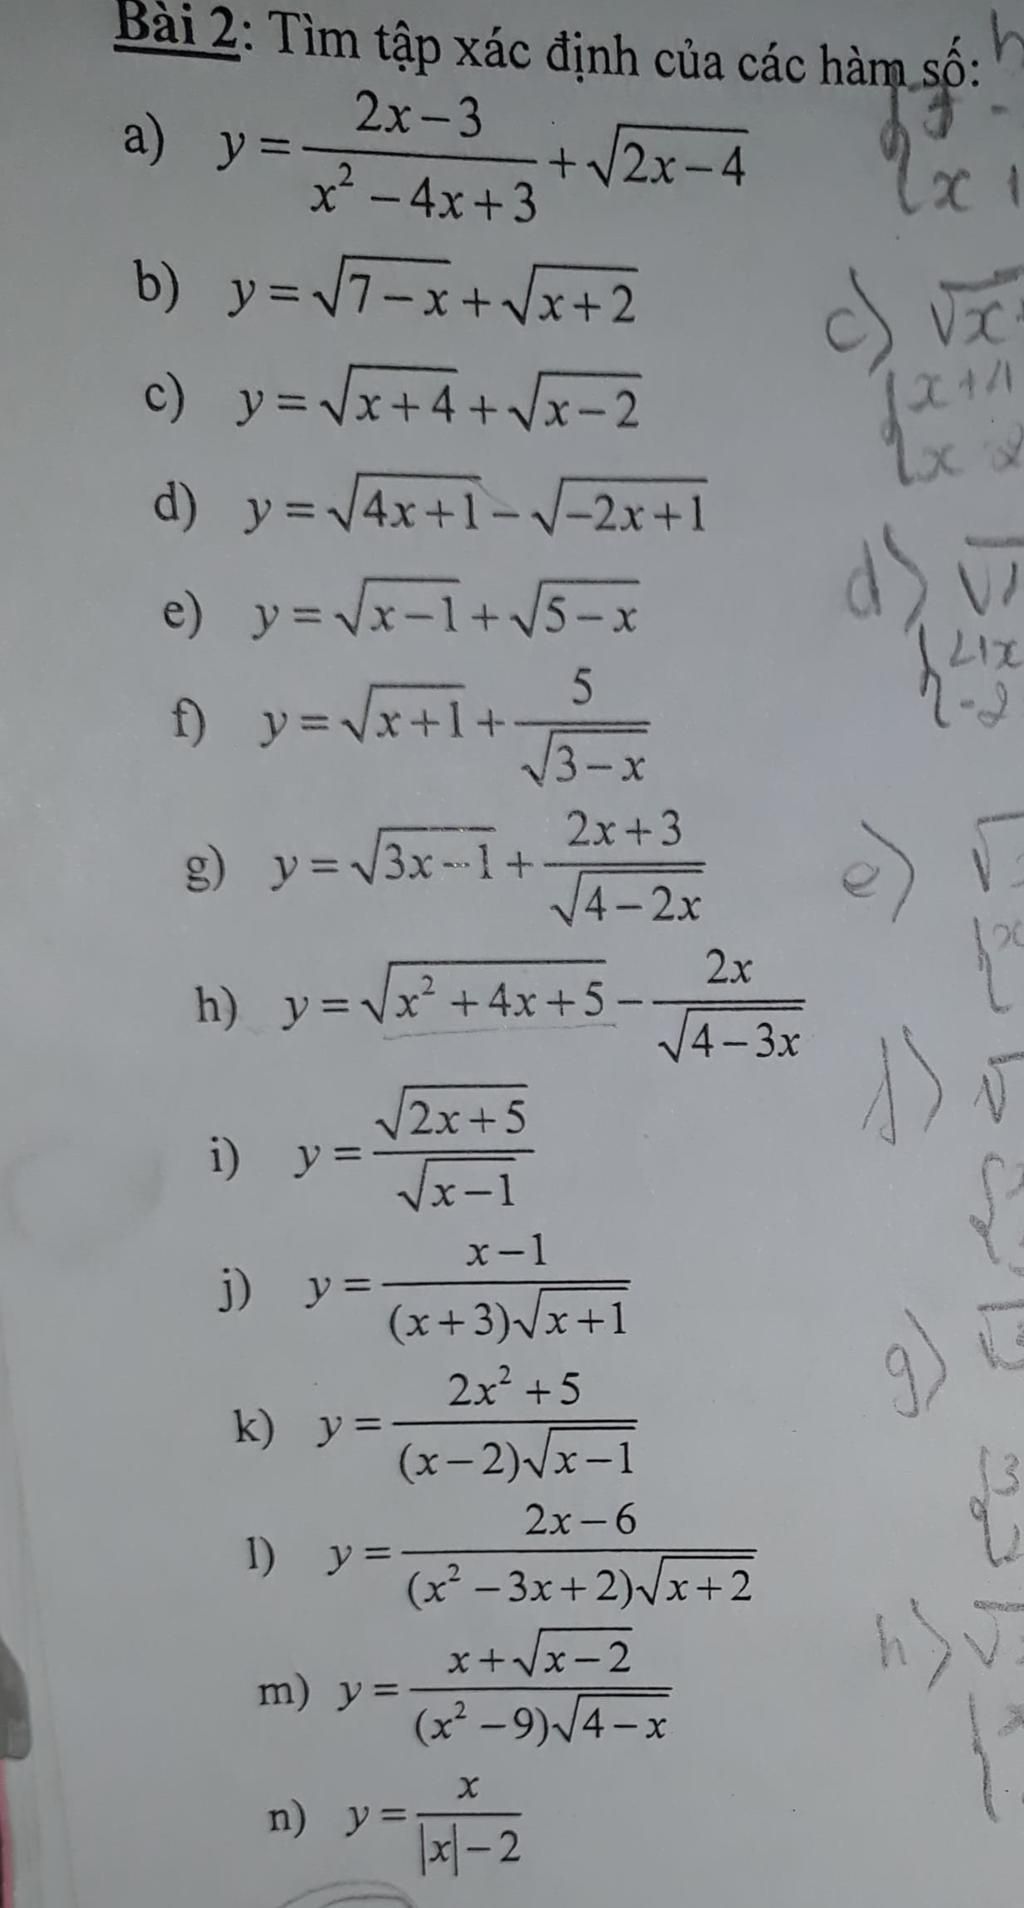 Bài 2: Tìm tập xác định của các hàm số:
a) y = \frac{2x-3}{x^2-4x+3} + \sqrt{2x-4}
b) y = \sqrt{7-x} + \sqrt{x+2}
c) y = \sqrt{x+4} + \sqrt{x-2}
d) y = \sqrt{4x+1} - \sqrt{-2x+1}
e) y = \sqrt{x-1} + \sqrt{5-x}
f) y = \sqrt{x+1} + \frac{5}{\sqrt{3-x}}
g) y = \sqrt{3x-1} + \frac{2x+3}{\sqrt{4-2x}}
h) y = \sqrt{x^2+4x+5} - \frac{2x}{\sqrt{4-3x}}
i) y = \frac{\sqrt{2x+5}}{\sqrt{x-1}}
j) y = \frac{x-1}{(x+3)\sqrt{x+1}}
k) y = \frac{2x^2+5}{(x-2)\sqrt{x-1}}
l) y = \frac{2x-6}{(x^2-3x+2)\sqrt{x+2}}
m) y = \frac{x+\sqrt{x-2}}{(x^2-9)\sqrt{4-x}}
n) y = \frac{x}{|x|-2}
c) √x
d)
e)
f)
g)
h)